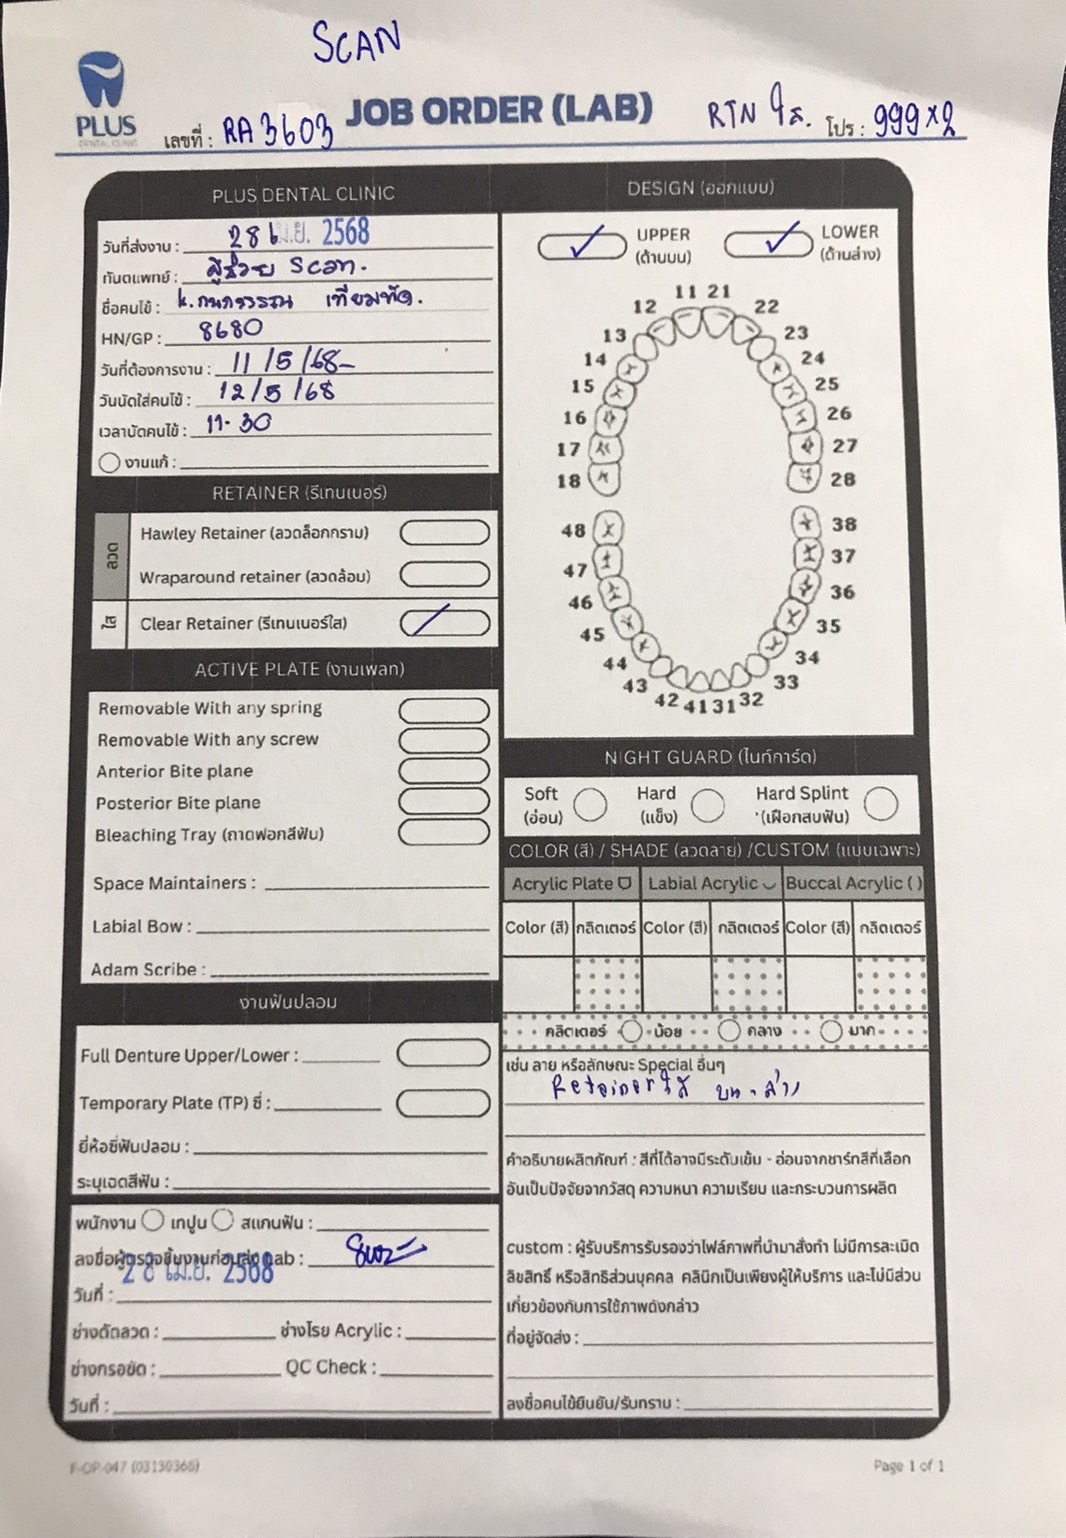 SCAN
PLUS
DENTAL CLINIC
เลขที่ : RA 3603
JOB ORDER (LAB)
RTN ใส. โปร : 999x2
PLUS DENTAL CLINIC
วันที่ส่งงาน : 28 เม.ย. 2568
ทันตแพทย์ : ผู้ช่วย scan.
ชื่อคนไข้ : k.กนกวรรณ
HN/GP : 8680
วันที่ต้องการงาน : 11/5/68
วันนัดใส่คนไข้ : 12/5/68
เวลานัดคนไข้ : 11.30
งานแก้ :
RETAINER (รีเทนเนอร์)
ลวด
Hawley Retainer (ลวดล็อกกราม)
Wraparound retainer (ลวดล้อม)
ใส
Clear Retainer (รีเทนเนอร์ใส)
ACTIVE PLATE (งานเพลท)
Removable With any spring
Removable With any screw
Anterior Bite plane
Posterior Bite plane
Bleaching Tray (ถาดฟอกสีฟัน)
Space Maintainers :
Labial Bow :
Adam Scribe :
งานฟันปลอม
Full Denture Upper/Lower :
Temporary Plate (TP) ซี่ :
ยี่ห้อซี่ฟันปลอม :
ระบุเฉดสีฟัน :
พนักงาน เทปูน สแกนฟัน :
ลงชื่อผู้ตรวจชิ้นงานก่อนส่ง Lab :
28 เม.ย. 2568
วันที่ :
ช่างดัดลวด : ช่างโรย Acrylic :
ช่างกรอขัด : QC Check :
วันที่ :
DESIGN (ออกแบบ)
UPPER
(ด้านบน)
LOWER
(ด้านล่าง)
11 21
12 22
13 23
14 24
15 25
16 26
17 27
18 28
48 38
47 37
46 36
45 35
44 34
43 33
42 41 31 32
NIGHT GUARD (ไนท์การ์ด)
Soft
(อ่อน)
Hard
(แข็ง)
Hard Splint
(เฝือกสบฟัน)
COLOR (สี) / SHADE (ลวดลาย) /CUSTOM (แบบเฉพาะ)
Acrylic Plate Labial Acrylic Buccal Acrylic ( )
Color (สี) กลิตเตอร์ Color (สี) กลิตเตอร์ Color (สี) กลิตเตอร์
กลิตเตอร์ น้อย กลาง มาก
เช่น ลาย หรือลักษณะ Special อื่นๆ
Retainer ใส บน-ล่าง
คำอธิบายผลิตภัณฑ์ : สีที่ได้อาจมีระดับเข้ม - อ่อนจากชาร์ทสีที่เลือก
อันเป็นปัจจัยจากวัสดุ ความหนา ความเรียบ และกระบวนการผลิต
custom : ผู้รับบริการรับรองว่าไฟล์ภาพที่นำมาสั่งทำ ไม่มีการละเมิด
ลิขสิทธิ์ หรือสิทธิส่วนบุคคล คลินิกเป็นเพียงผู้ให้บริการ และไม่มีส่วน
เกี่ยวข้องกับการใช้ภาพดังกล่าว
ที่อยู่จัดส่ง :
ลงชื่อคนไข้ยืนยัน/รับทราบ :
F-OP-047 (03130366)
Page 1 of 1